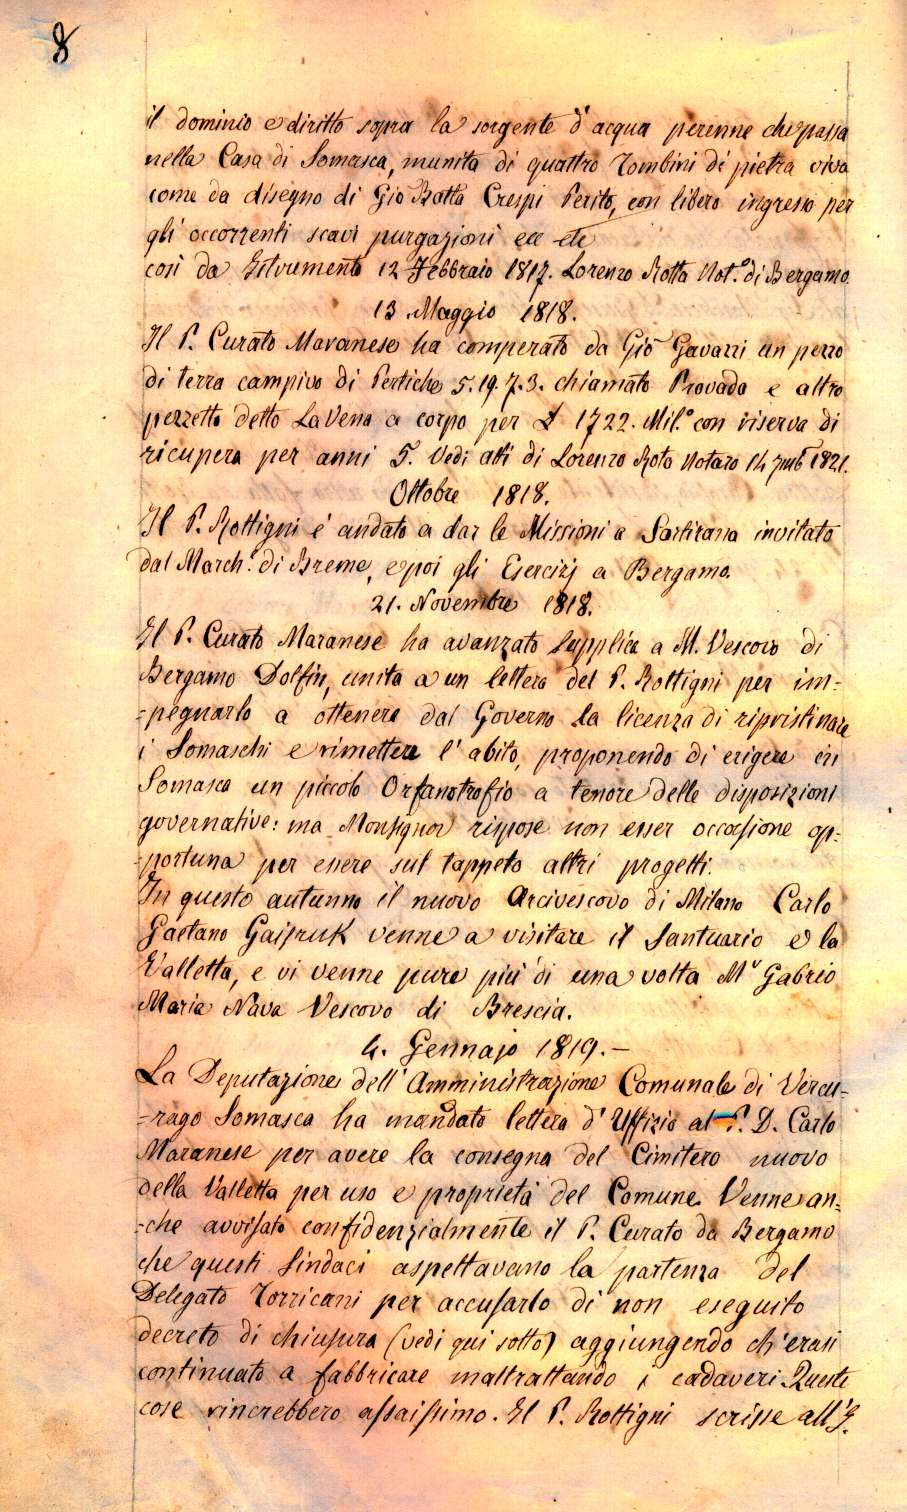 8
il dominio e diritto sopra la sorgente d'acqua perenne che passa
nella Casa di Somasca, munita di quattro Tombini di pietra viva
come da disegno di Gio Batta Crespi Perito, con libero ingresso per
gli occorrenti scavi purgazioni ecc etc
così da Istrumento 12 Febbraio 1817. Lorenzo Rotta Not.º di Bergamo.
13 Maggio 1818.
Il P. Curato Maranese ha comperato da Gio Gavazzi un pezzo
di terra campivo di Pertiche 5.19.7.3. chiamato Provada e altro
pezzetto detto La Vena a corpo per £ 1722. Mil.º con riserva di
ricupera per anni 5. Vedi atti di Lorenzo Rota Notaro 14 1821.
Ottobre 1818.
Il P. Rottigni é andato a dar le Missioni a Sartirana invitato
dal March: di Breme, e poi gli Esercizj a Bergamo.
21. Novembre 1818.
Il P. Curato Maranese ha avanzato Supplica a M. Vescovo di
Bergamo Dolfin, unita a un lettera del P. Rottigni per im=
=pegnarlo a ottenere dal Governo la licenza di ripristinare
i Somaschi e rimettere l'abito, proponendo di erigere in
Somasca un piccolo Orfanotrofio a tenore delle disposizioni
governative: ma Monsignor rispose non esser occasione op=
=portuna per essere sul tappeto altri progetti.
In questo autunno il nuovo Arcivescovo di Milano Carlo
Gaetano Gaisruk venne a visitare il Santuario e la
Valletta, e vi venne pure più di una volta Mr Gabrio
Maria Nava Vescovo di Brescia.
4. Gennajo 1819.-
La Deputazione dell'Amministrazione Comunale di Vercu=
=rago Somasca ha mandato lettera d'Uffizio al P. D. Carlo
Maranese per avere la consegna del Cimitero nuovo
della Valletta per uso e proprietà del Comune. Venne an=
=che avvisato confidenzialmente il P. Curato da Bergamo
che questi Sindaci aspettavano la partenza del
Delegato Torricani per accusarlo di non eseguito
decreto di chiusura (vedi qui sotto) aggiungendo ch'erasi
continuato a fabbricare maltrattando i cadaveri. Queste
cose rincrebbero assaissimo. Il P. Rottigni scrisse all'I.